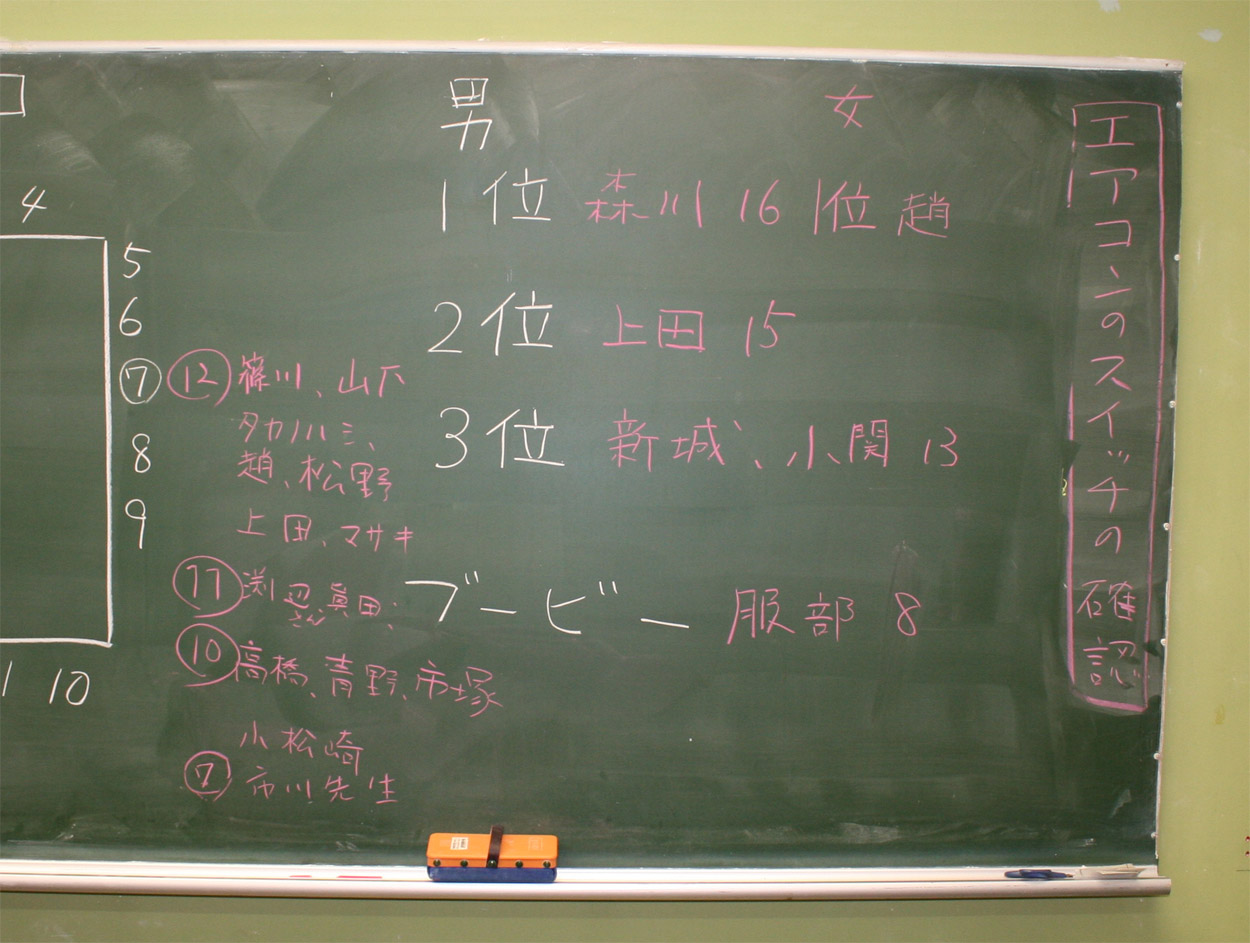 男 女
1位 森川 16 1位 趙
2位 上田 15
3位 新城、小関 13
ブービー 服部 8
4
5
6
⑦
8
9
1 10
⑫ 篠川、山下
タカハシ、
趙、松野
上田、マサキ
⑪ 渕辺さん 眞田、
⑩ 高橋、青野、市塚
小松崎
⑦ 市川先生
エアコンのスイッチの確認